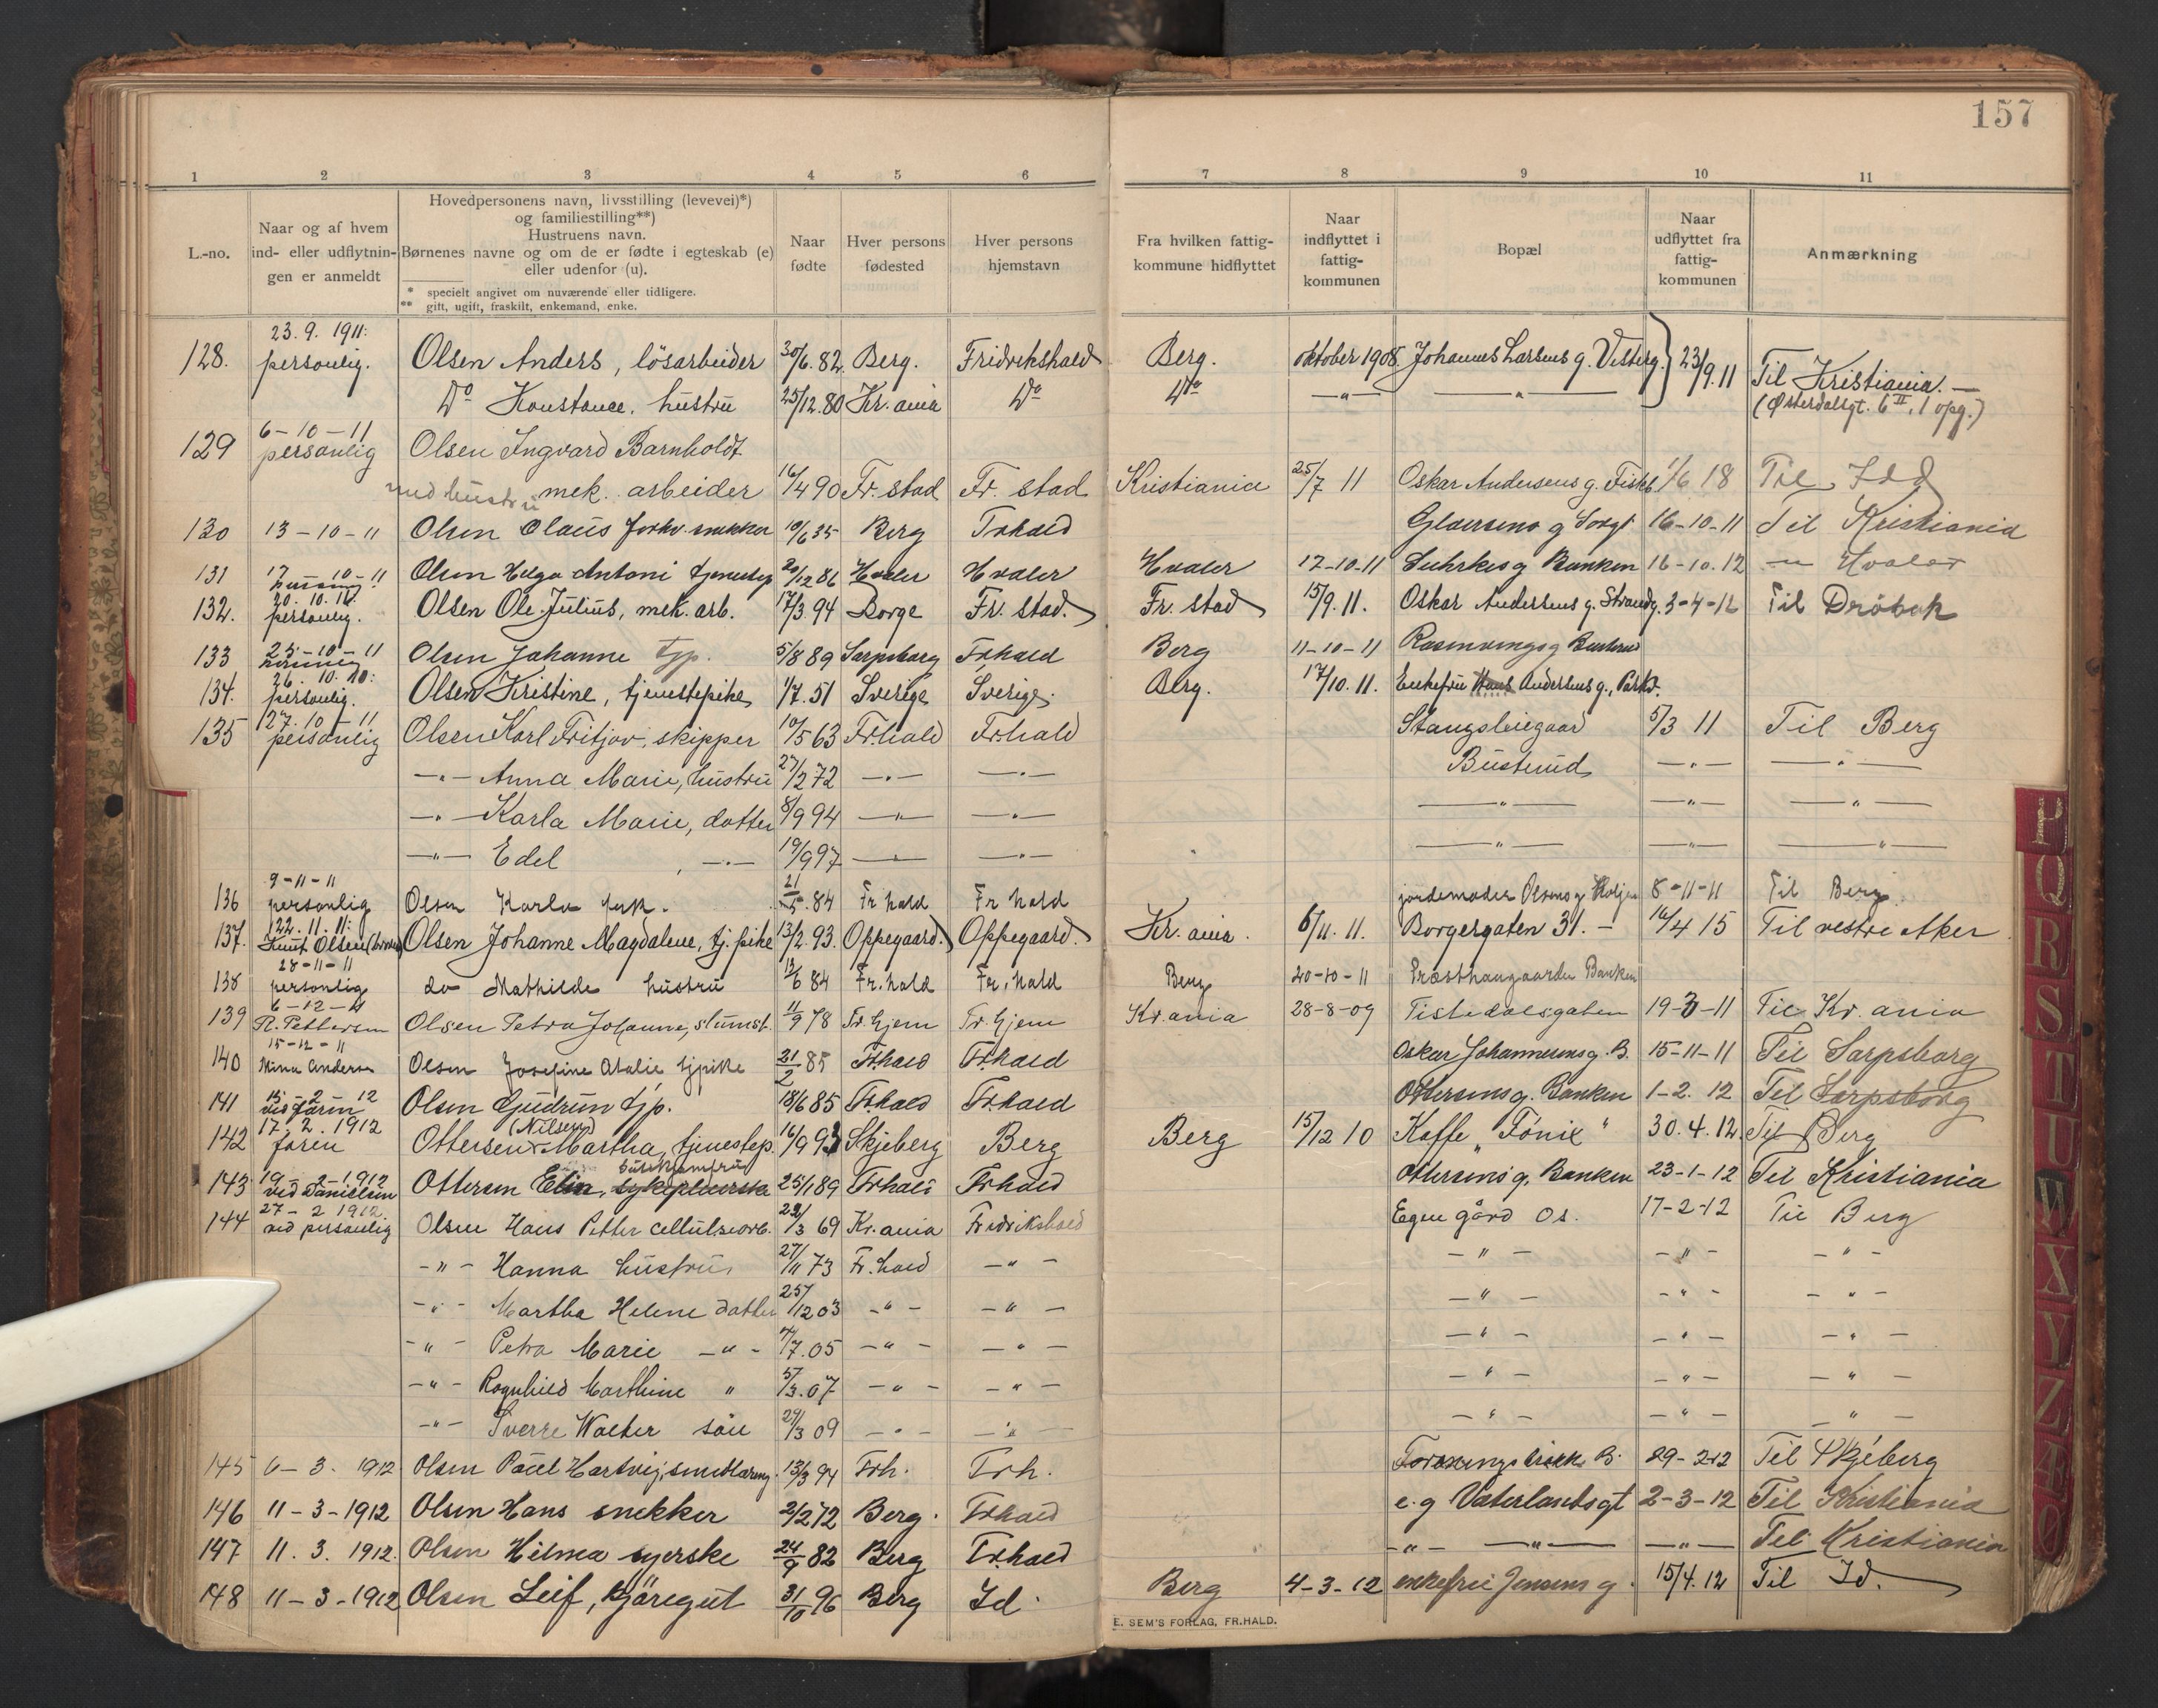 157
1 2 3 4 5 6 7 8 9 10 11
L.-no.
Naar og af hvem
ind- eller udflytnin-
gen er anmeldt
Hovedpersonens navn, livsstilling (levevei)*)
og familiestilling**)
Hustruens navn.
Børnenes navne og om de er fødte i egteskab (e)
eller udenfor (u).
* specielt angivet om nuværende eller tidligere.
** gift, ugift, fraskilt, enkemand, enke.
Naar
fødte
Hver persons
fødested
Hver persons
hjemstavn
Fra hvilken fattig-
kommune hidflyttet
Naar
indflyttet i
fattig-
kommunen
Bopæl
Naar
udflyttet fra
fattig-
kommunen
Anmærkning
23. 9. 1911:
128. personlig. Olsen Anders, lösarbeider 30/6. 82. Berg. Fridrekshald Berg. oktober 1908. Johannes Larsens g. Vesterg. 23/9. 11 Til Kristiania. —
Do Konstance, hustru 25/12. 80 Kr. ania Do Do — " — — " — (Østerdalsgt. 6 II, 1 opg.)
6 - 10 - 11
129 personlig Olsen Ingvard Barnholdt
med hustru mek. arbeider 16/4 90 Fr. stad Fr. stad Kristiania 25/7 11 Oskar Andersens g. Fiskb. 1/6 18 Til Idd
130 13 - 10 - 11 Olsen Olaus forhv. snekker 10/6 35 Berg Frhald g Sorgt 16-10-11 Til Kristiania
131 17 - 10 - 11 Olsen Helga Antoni tjenestep 20/12 86 Hvaler Hvaler Hvaler 17-10-11 Suhrkes g Banken 16-10. 12 — " Hvaler
20. 10. 11.
132. personlig. Olsen Ole Julius, mek. arb. 17/3. 94 Borge Fr. stad. Fr. stad 15/9. 11. Oskar Andersens g. Strandg. 3-4-12 Til Dröbak
25 - 10 - 11
133 Olsen Johanne tjp. 5/8 89 Sarpsborg Frhald Berg 11-10-11 Rasmusengs g Busterud
26. 10. 10:
134. personlig. Olsen Kristine, tjenestepike 1/7. 51 Sverige Sverige. Berg. 17/10. 11. Enkefru Hans Andersens g., Parkv.
27. 10 - 11
135 personlig Olsen Karl Fritjov, skipper 10/5 63 Fr.hald Fr.hald Stangsleiegaard 5/3 11 Til Berg
— " — Anna Marie, hustru 27/2 72 — " — — " — Busterud — " — — " —
— " — Karla Marie, datter 8/9 94 — " — — " — — " — — " — — " —
— " — Edel , — " — 19/9 97 — " — — " — — " — — " — — " —
9 - 11 - 11
136 personlig Olsen Karla 21/5. 84 Fr hald Fr hald jordemoder Olsens g 8-11-11 Til Berg
22. 11. 11:
137. Knut Olsen (broder) Olsen Johanne Magdalene, tj. pike 13/2. 93. Oppegaard. Oppegaard. Kr. ania. 6/11. 11. Borgergaten 31. — 16/4 15 Til vestre Aker.
28 - 11 - 11
138 personlig do Mathilde hustru 12/6 84 Fr. hald Fr. hald Berg 20-10-11 Præsthaugaarden Banken
6 - 12 - 11
139 R. Pettersen Olsen Petra Johanne, slumst. 11/9 78 Tr. hjem Tr. hjem Kr. ania 28-8-09 Tistedalsgaten 19-3-11 Til Kr. ania
15 - 12 - 11
140 Mina Andersen Olsen Josefine Atalie tjpike 21/2 85 Fr.hald Fr.hald Oskar Johannesens g. B. 15-11-11 Til Sarpsborg
15 - 2 - 12
141 ved faren Olsen Gudrun tjp. 18/6 85 Fr.hald Fr.hald Ottersens g. Banken 1-2. 12 Til Sarpsborg
17. 2. 1912 (Nilsen)
142 faren Ottersen Martha, tjenestep. 16/9 93 Skjeberg Berg Berg 15/12 10 Kaffe "Fónix" 30. 4. 12. Til Berg
19 - 2 - 1912 butikjomfru
143 ved Danielsen Ottersen Elin, sykepleierske 25/1 89 Fr.hald Frhald Ottersens g. Banken 23-1-12 Til Kristiania
27 - 2 1912
144 ved personlig Olsen Hans Petter cellulosearb. 22/3 69 Kr. ania Fredrikshald Egen gård Os. 17-2-12 Til Berg
- " - Hanna hustru 27/11 73 Fr. hald - " - - " - - " - - " -
- " - Martha Helene datter 25/12 03 - " - - " - - " - - " - - " -
- " - Petra Marie - " - 7/7. 05 - " - - " - - " - - " - - " -
- " - Ragnhild Marthine " 5/3. 07 - " - - " - - " - - " - - " -
- " - Sverre Walter sön 29/3 09 - " - - " - - " - - " - - " -
145 6 - 3. 1912 Olsen Paul Hartvig, smedlæreng. 13/3 94 Frh. Frh. B. 29-2-12 Til Skjeberg
146 11 - 3 - 1912 Olsen Hans snekker 2/2 72 Berg. Frhald e. g Vaterlandsgt 2-3-12 Til Kristiania
147 11. 3. 1912. Olsen Hilma syerske 24/9 82 Berg Frhald - " - — " — — " — Til Kristiania
148 11 - 3 - 1912 Olsen Leif, kjöregut 31/10 96 Berg Id. Berg 4-3-12 enkefru Jensens g. 15/4. 12 Til Id.
E. SEM'S FORLAG, FR.HALD.
P
Q
R
S
T
U
W
X
Y
Z
Æ
Ø